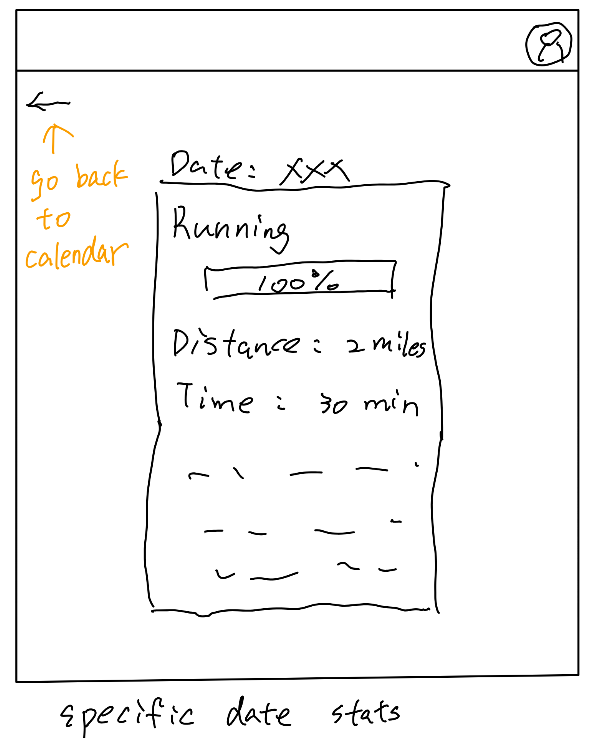 go back
to
calendar
Date: XXX
Running
100%
Distance: 2 miles
Time: 30 min
specific date stats